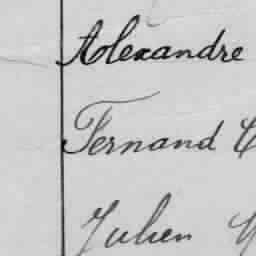 Alexandre
Fernand
Julien